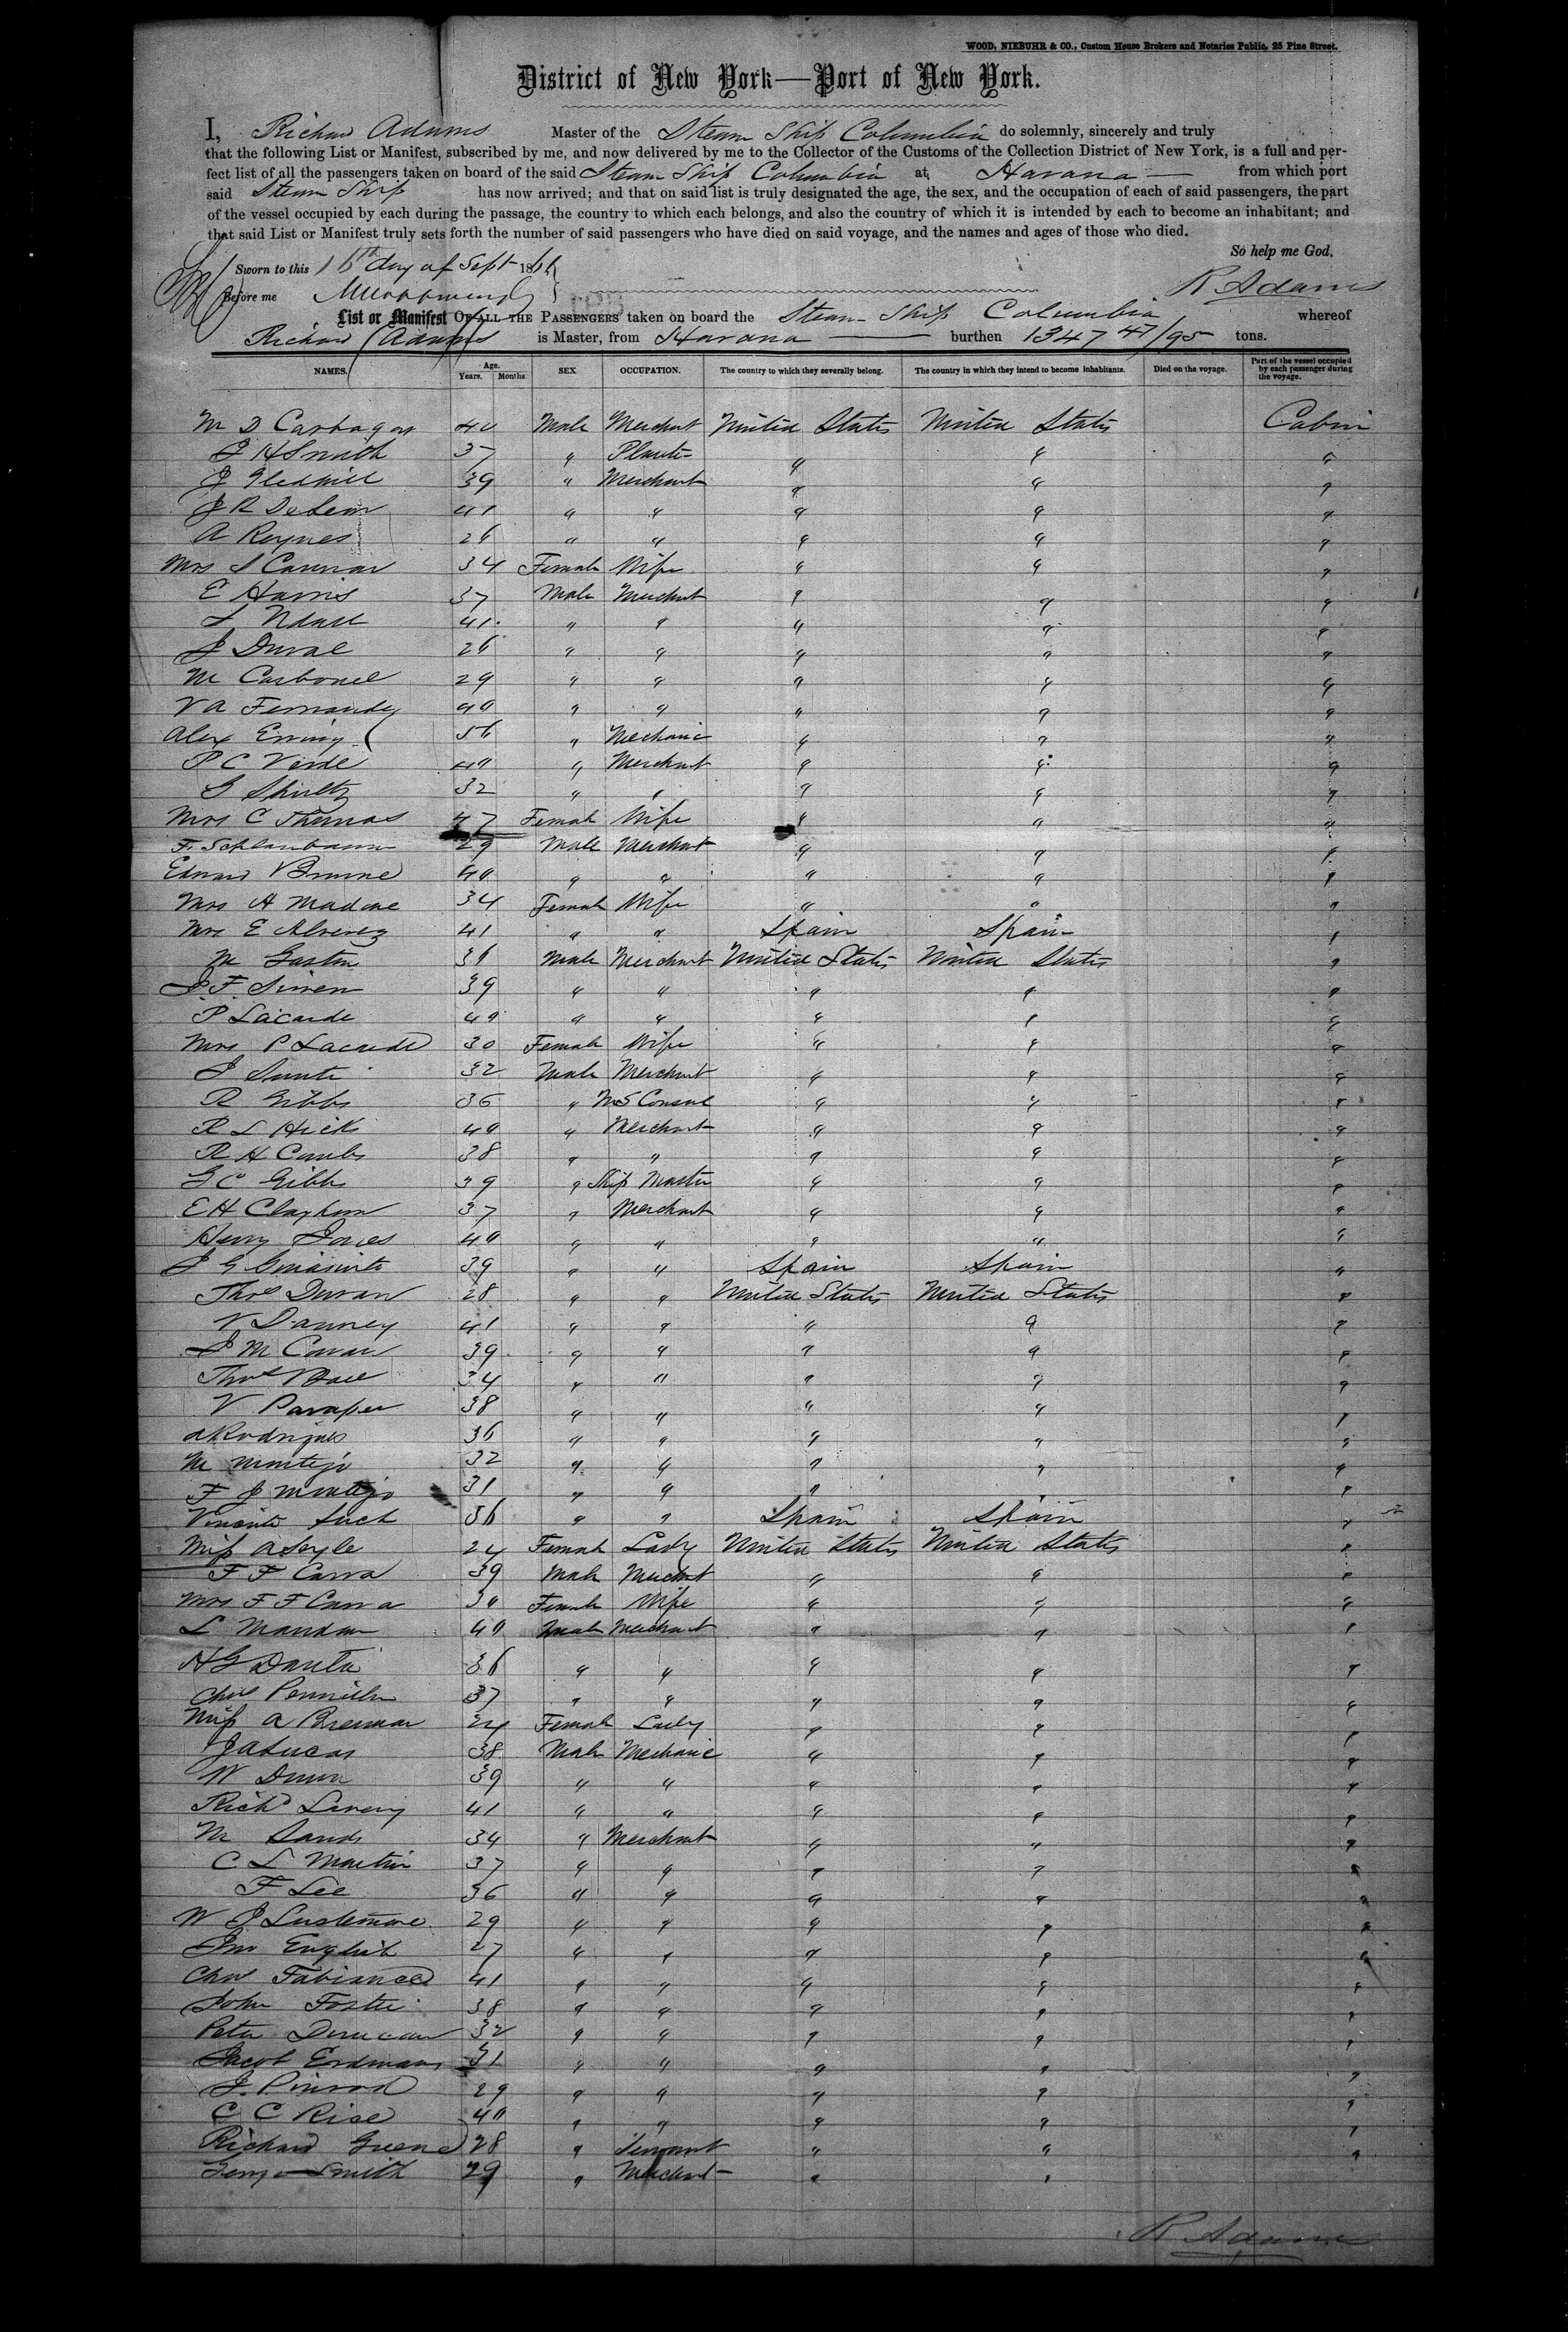 WOOD, NIEBUHR & CO., Custom House Brokers and Notaries Public, 25 Pine Street.
District of New York—Port of New York.
I, Richard Adams Master of the Steam Ship Columbia do solemnly, sincerely and truly
that the following List or Manifest, subscribed by me, and now delivered by me to the Collector of the Customs of the Collection District of New York, is a full and per-
fect list of all the passengers taken on board of the said Steam Ship Columbia at Havana from which port
said Steam Ship has now arrived; and that on said list is truly designated the age, the sex, and the occupation of each of said passengers, the part
of the vessel occupied by each during the passage, the country to which each belongs, and also the country of which it is intended by each to become an inhabitant; and
that said List or Manifest truly sets forth the number of said passengers who have died on said voyage, and the names and ages of those who died.
So help me God.
Sworn to this 16th day of Sept 1861
Before me R Adams
List or Manifest OF ALL THE PASSENGERS taken on board the Steam Ship Columbia whereof
Richard Adams is Master, from Havana burthen 1347 47/95 tons.
NAMES. Age. Years. Months. SEX. OCCUPATION. The country to which they severally belong. The country in which they intend to become inhabitants. Died on the voyage. Part of the vessel occupied by each passenger during the voyage.
M D 40 Male Merchant United States United States Cabin
J H Smith 37 " Planter " " "
J Gledhill 39 " Merchant " " "
J R DeLeon 41 " " " " "
A Reynes 26 " " " " "
Mrs 34 Female Wife " " "
E Harris 37 Male Merchant " " "
41 " " " " "
J Duval 26 " " " " "
M Carbonel 29 " " " " "
V A Fernandez 40 " " " " "
Alex 56 " Mechanic " " "
P C Verde 40 " Merchant " " "
G Shultz 32 " " " " "
Mrs C Thomas 47 Female Wife " " "
F. 29 Male Merchant " " "
Edward 40 " " " " "
Mrs H 34 Female Wife " " "
Mrs E Alverez 41 " " Spain Spain "
M Gaston 36 Male Merchant United States United States "
J. F. 39 " " " " "
P Lacarde 40 " " " " "
Mrs P Lacarde 30 Female Wife " " "
J 32 Male Merchant " " "
R Gibbs 36 " U S Consul " " "
R L Hicks 40 " Merchant " " "
R H Combs 38 " " " " "
G C Gibbs 39 " Ship Master " " "
E H Claghorn 37 " Merchant " " "
Henry Jones 40 " " " " "
J G 39 " " Spain Spain "
Thos Duran 28 " " United States United States "
V 41 " " " " "
J M 39 " " " " "
Thos 34 " " " " "
V 38 " " " " "
A Rodrigues 36 " " " " "
M Montejo 32 " " " " "
F J Montejo 31 " " " " "
Vincente 36 " " Spain Spain "
Miss A 24 Female Lady United States United States "
F F Carra 39 Male Merchant " " "
Mrs F F Carra 30 Female Wife " " "
L 40 Male Merchant " " "
H G 36 " " " " "
Chas 37 " " " " "
Miss A 24 Female Lady " " "
J A Lucas 38 Male Mechanic " " "
W Dunn 39 " " " " "
Richd 41 " " " " "
M Sands 34 " Merchant " " "
C L Martin 37 " " " " "
F Lee 36 " " " " "
W J 29 " " " " "
Jno English 27 " " " " "
Chas 41 " " " " "
John Foster 38 " " " " "
Peter Duncan 32 " " " " "
Jacob Erdmans 31 " " " " "
J. 29 " " " " "
C C Rise 40 " " " " "
Richard Greene 28 " Servant " " "
George Smith 29 " Merchant " "
R Adams